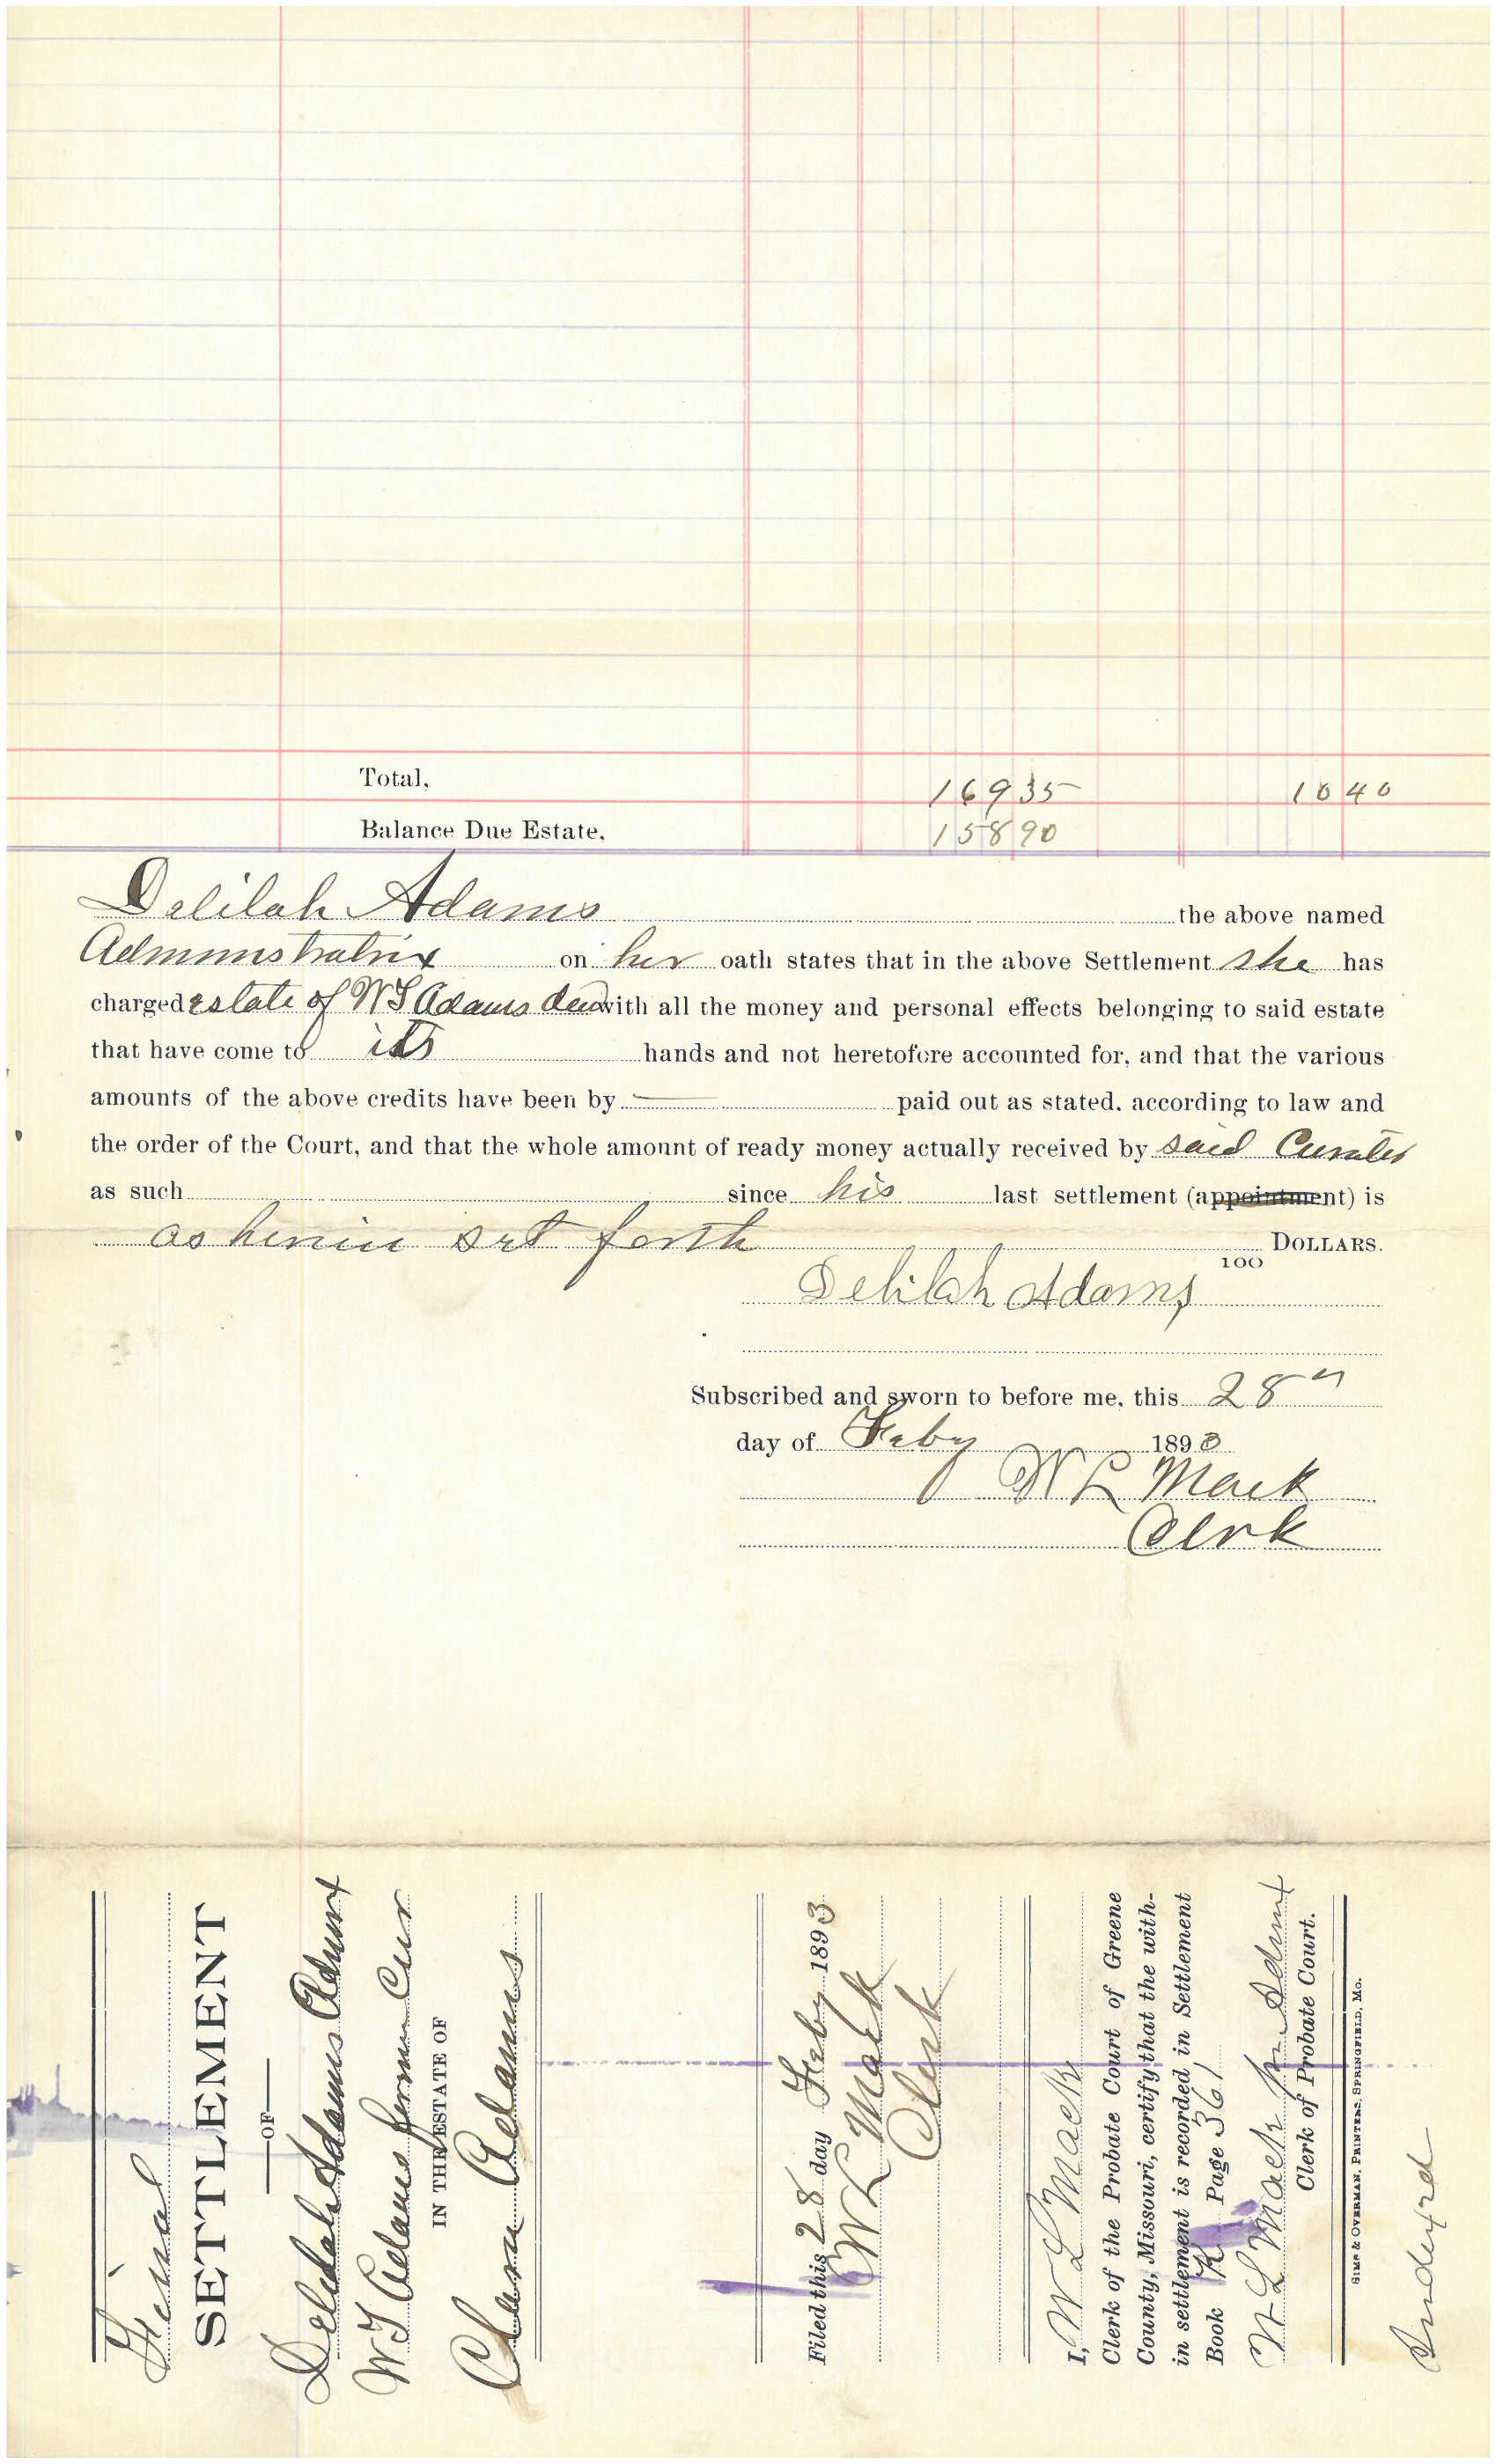 Total, 169 35 10 40
Balance Due Estate. 158 90
Delilah Adams the above named
Administratrix on her oath states that in the above Settlement she has
charged estate of W T Adams decd with all the money and personal effects belonging to said estate
that have come to its hands and not heretofore accounted for, and that the various
amounts of the above credits have been by — paid out as stated, according to law and
the order of the Court, and that the whole amount of ready money actually received by said Curator
as such since his last settlement (appointment) is
as herein set forth DOLLARS.
100
Delilah Adams
Subscribed and sworn to before me, this 28"
day of Feby 1893
W L Mack
Clerk
Final
SETTLEMENT
OF
Delilah Adams Admrx
W T Adams former Cur
IN THE ESTATE OF
Clara Adams
Filed this 28 day Feby 1893
W L Mack
Clerk
I, W L Mack
Clerk of the Probate Court of Greene
County, Missouri, certify that the with-
in settlement is recorded in Settlement
Book K Page 361
W L Mack
Clerk of Probate Court.
SIMS & OVERMAN, PRINTERS, SPRINGFIELD, MO.
Indexed